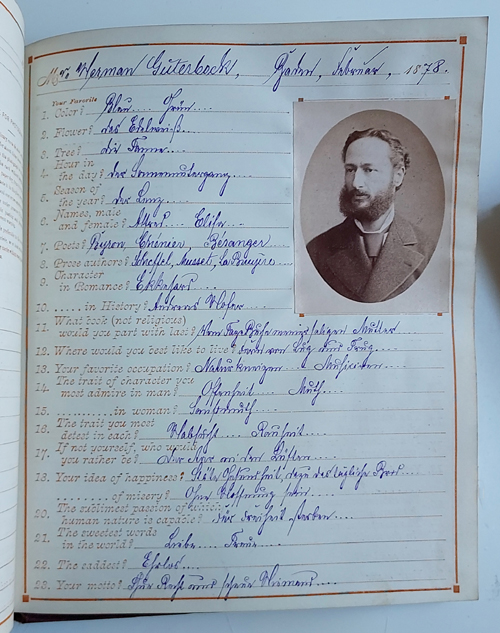 Mr. Herman Güterbock, Baden, Februar, 1878.
Your Favorite
1. Color? Blau.... Grün....
2. Flower? das Edelweiß...
3. Tree? die Tanne....
4. Hour in
the day? der Sonnenuntergang....
5. Season of
the year? der Lenz....
6. Names, male
and female? Alfred.... Elise....
7. Poets? Byron, Chénier, Béranger....
8. Prose authors? Scheffel, Musset, La Bruyère...
9. Character
in Romance? Ekkehard....
10. ..... in History? Andreas Hofer....
11. What book (not religious)
would you part with last? Mutter....
12. Where would you best like to live? Fern von Lug und Trug....
13. Your favorite occupation? Naturkneipen.... Musiciren....
14. The trait of character you
most admire in man? Offenheit.... Muth....
15. .......... in woman? Sanftmuth....
16. The trait you most
detest in each? Habsucht.... Rauheit....
17. If not yourself, who would
you rather be? Der Aar in den Lüften....
18. Your idea of happiness? Stäte Gesundheit, dazu das tägliche Brod....
.......... of misery? Ohne Hoffnung sein....
20. The sublimest passion of which
human nature is capable? Für Freiheit sterben....
21. The sweetest words
in the world? Liebe.... Treue....
22. The saddest? Ehrlos....
23. Your motto? Thue Recht und scheue Niemand....